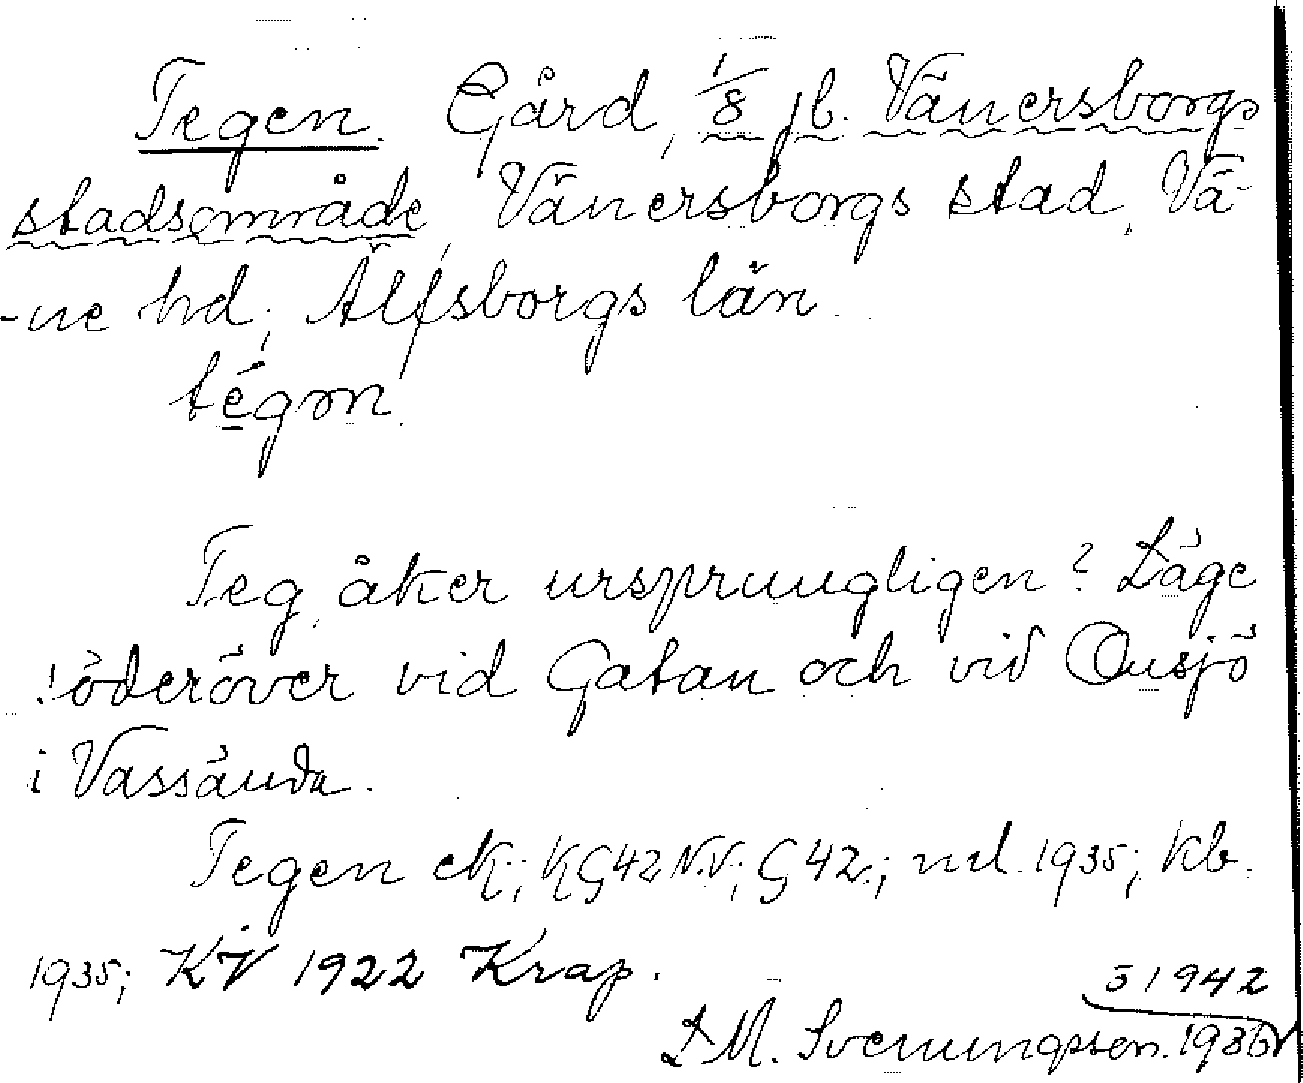 Tegen. Gård, 1/8 jb. Vänersborgs
stadsområde, Vänersborgs stad, Vä-
-ne hd; Älfsborgs län.
tégon.
Teg, åker ursprungligen? Läge
söderöver vid Gatan och vid Onsjö
i Vassända.
Tegen eK; KG42 N.V; G 42; ml. 1935; kb.
1935; KV 1922 Krap.
51942
D M. Svenungsson. 1936